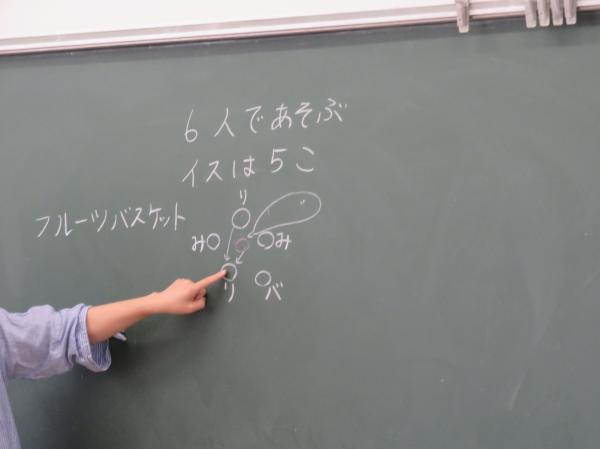 6人であそぶ
イスは5こ
フルーツバスケット
り
み
み
り
バ